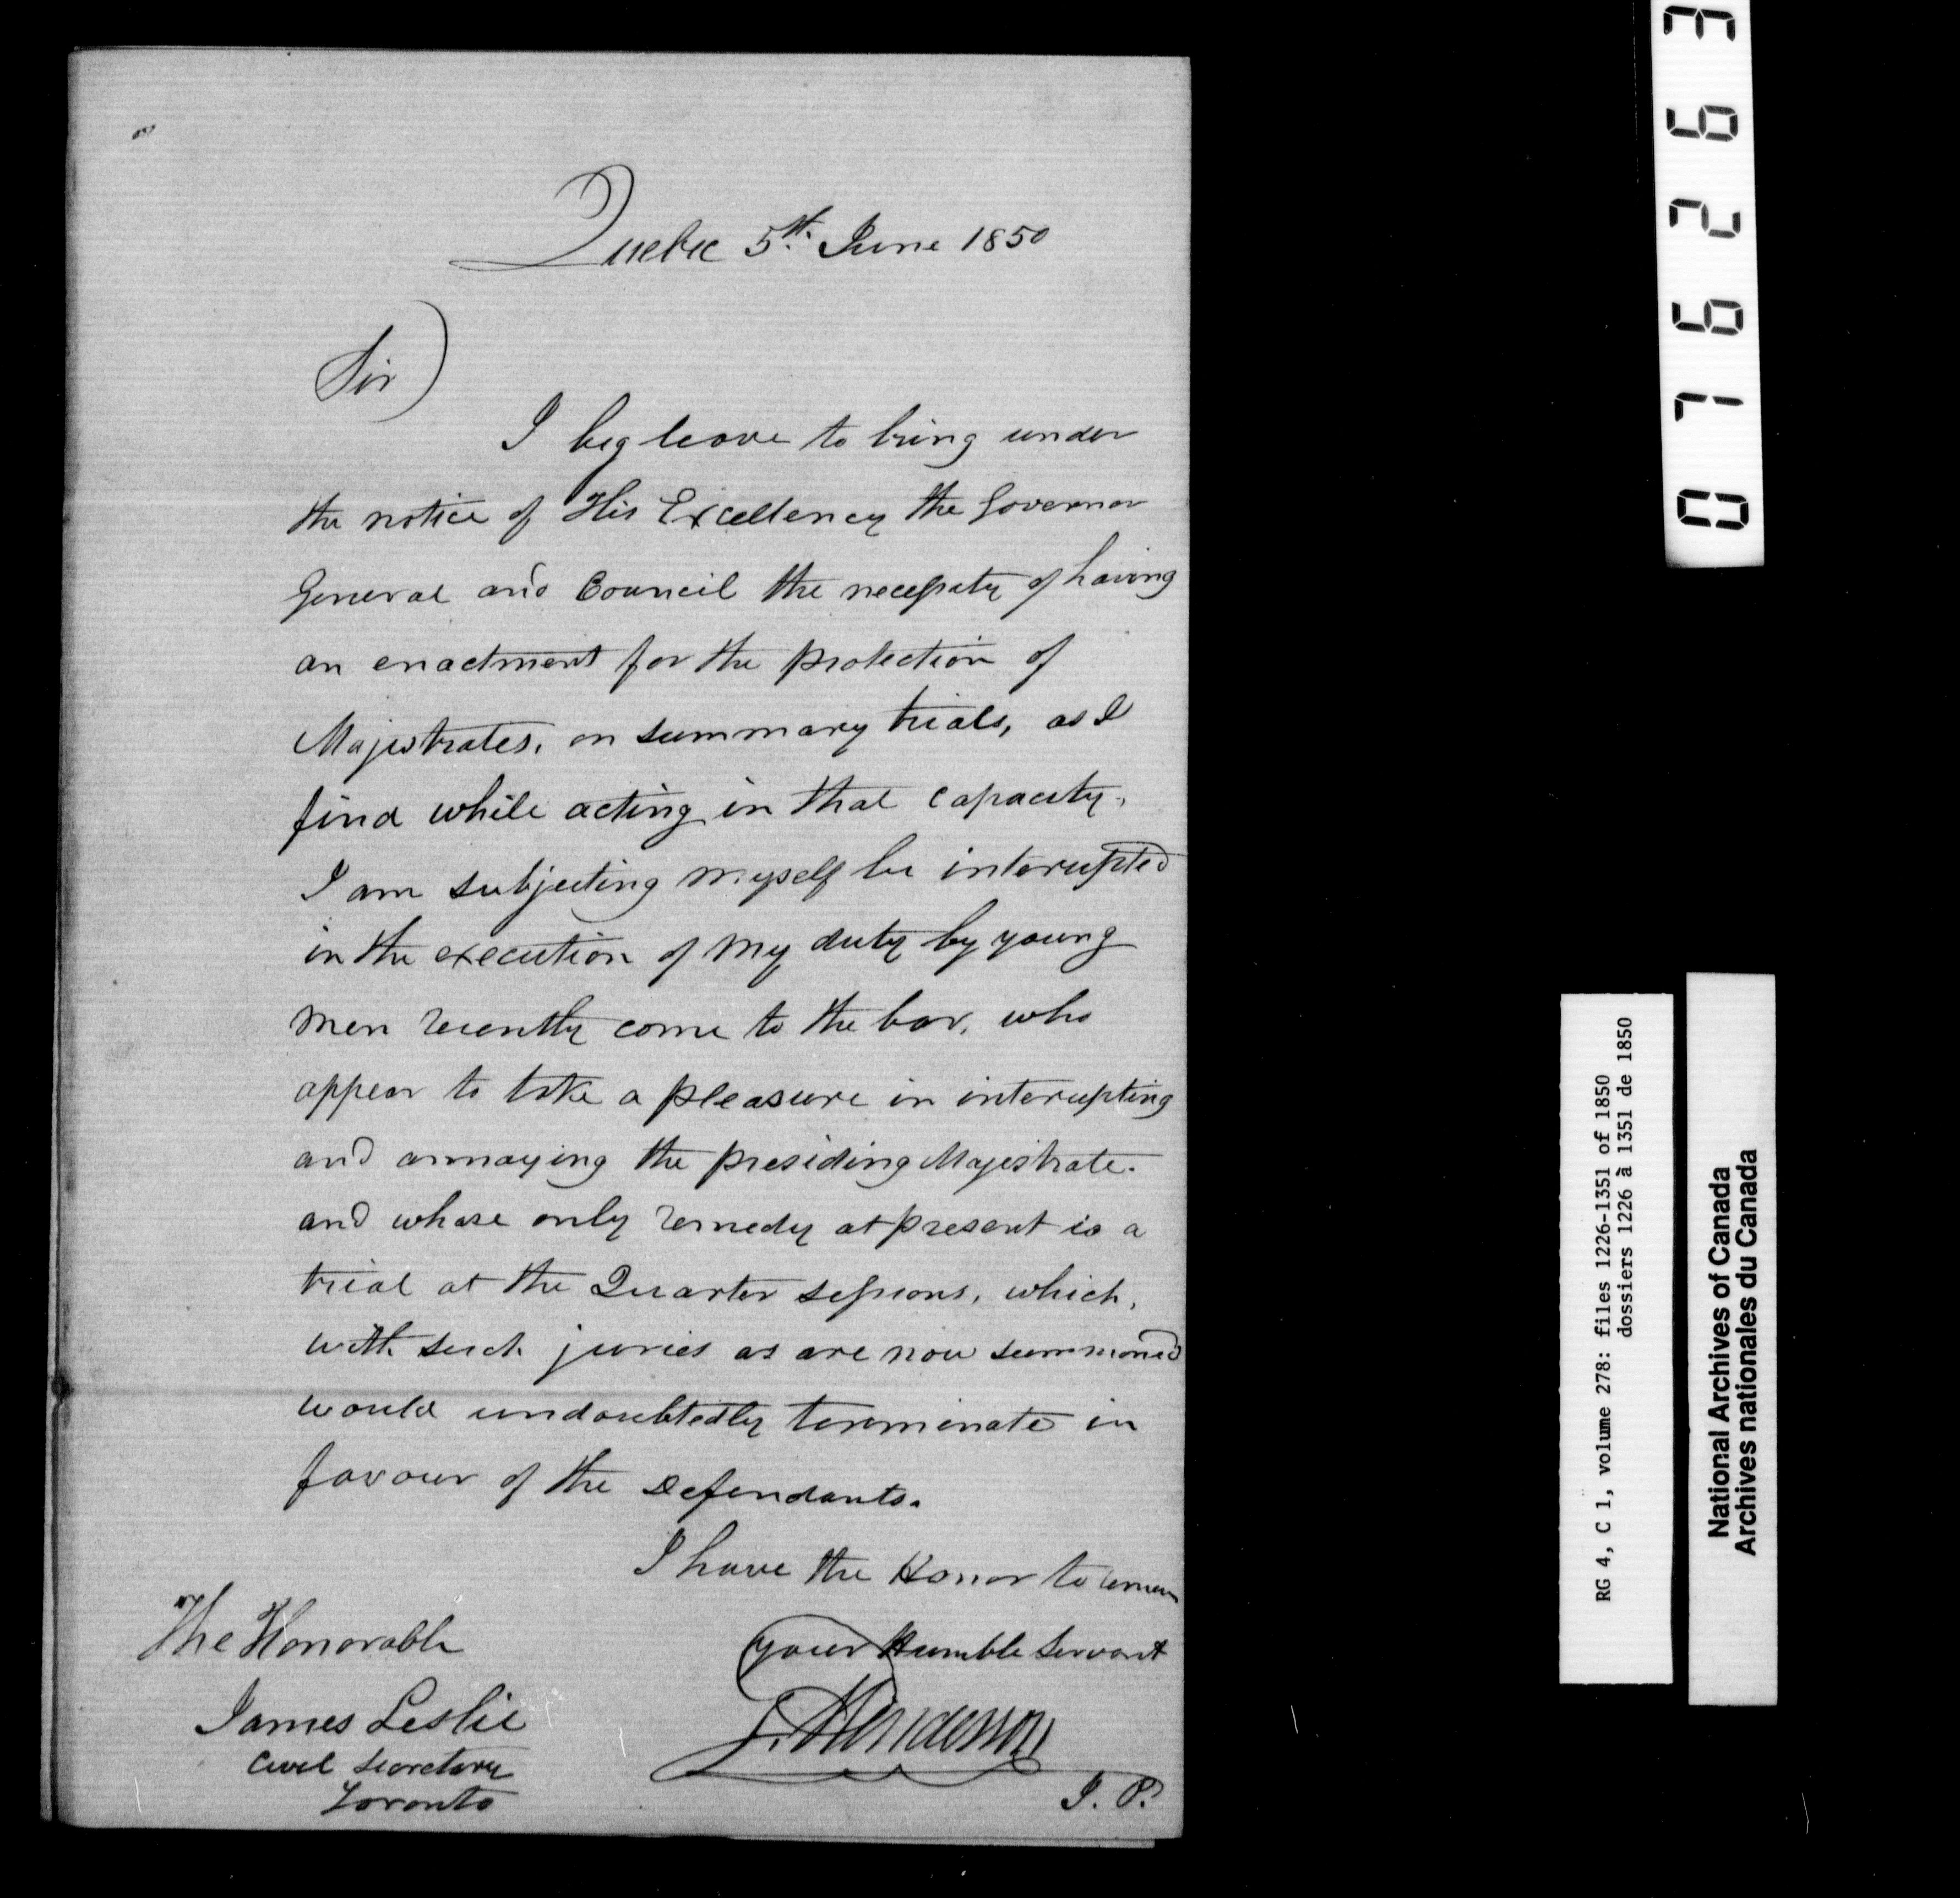 Quebec 5th June 1850
Sir)
I beg leave to bring under
the notice of His Excellency the Governor
General and Council the necessity of having
an enactment for the protection of
Majistrates, on summary trials, as I
find while acting in that capacity,
I am subjecting myself be interupted
in the execution of my duty by young
men recently come to the bar, who
appear to take a pleasure in interupting
and annoying the presiding Majestrate.
and whose only remedy at present is a
trial at the Quarter sessions, which,
with such juries as are now summoned
would undoubtedly terminate in
favour of the Defendants.
I have the Honor to remain
your Humble Servant
J. Henderson
J. P.
The Honorable
James Leslie
Civil Secretary
Toronto
076263
RG 4, C 1, volume 278: files 1226-1351 of 1850
dossiers 1226 à 1351 de 1850
National Archives of Canada
Archives nationales du Canada